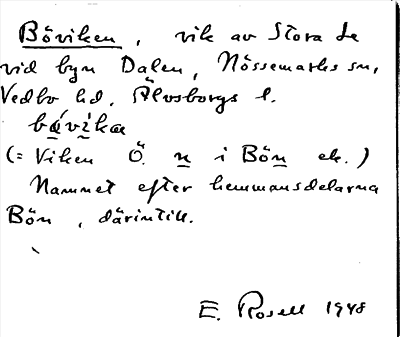 Böviken, vik av Stora Le
vid byn Dalen, Nössemarks sn,
Vedbo hd, Älvsborgs l.
(= Viken Ö. n i Bön ek.)
Namnet efter hemmansdelarna
Bön, därintill.
E. Rosell 1948